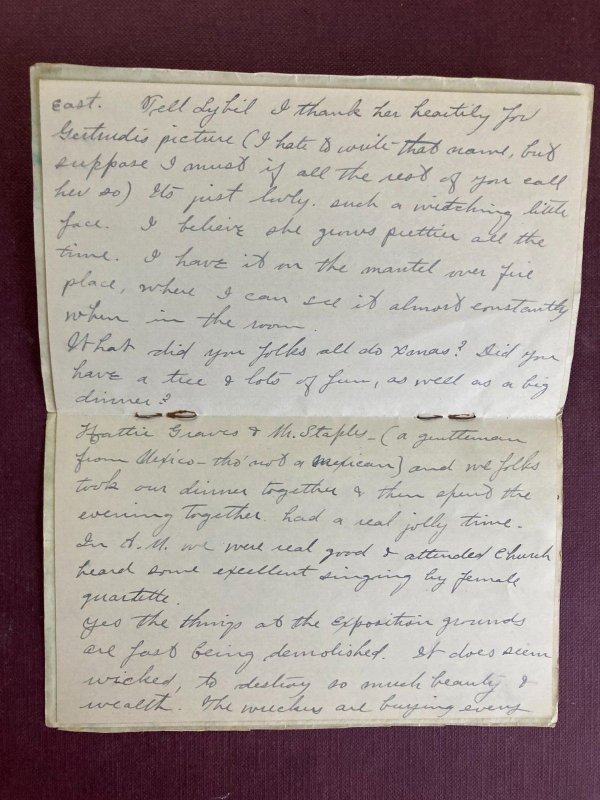 East. Tell Sybil I thank her heartily for
Gertrudis picture (I hate to write that name, but
suppose I must if all the rest of you call
her so) Its just lovly. such a witching little
face. I believe she grows prettier all the
time. I have it on the mantel over fire
place, where I can see it almost constantly
when in the room.
What did you folks all do Xmas? Did you
have a tree & lots of fun, as well as a big
dinner?
Hattie Graves & Mr. Staples - (a gentleman
from Mexico - tho' not a Mexican) and we folks
took our dinner together & then spent the
evening together. had a real jolly time.
In A.M. we were real good & attended Church
heard some excellent singing by female
quartette.
Yes the things at the Exposition grounds
are fast being demolished. It does seem
wicked, to destroy so much beauty &
wealth. The wreckers are buying every